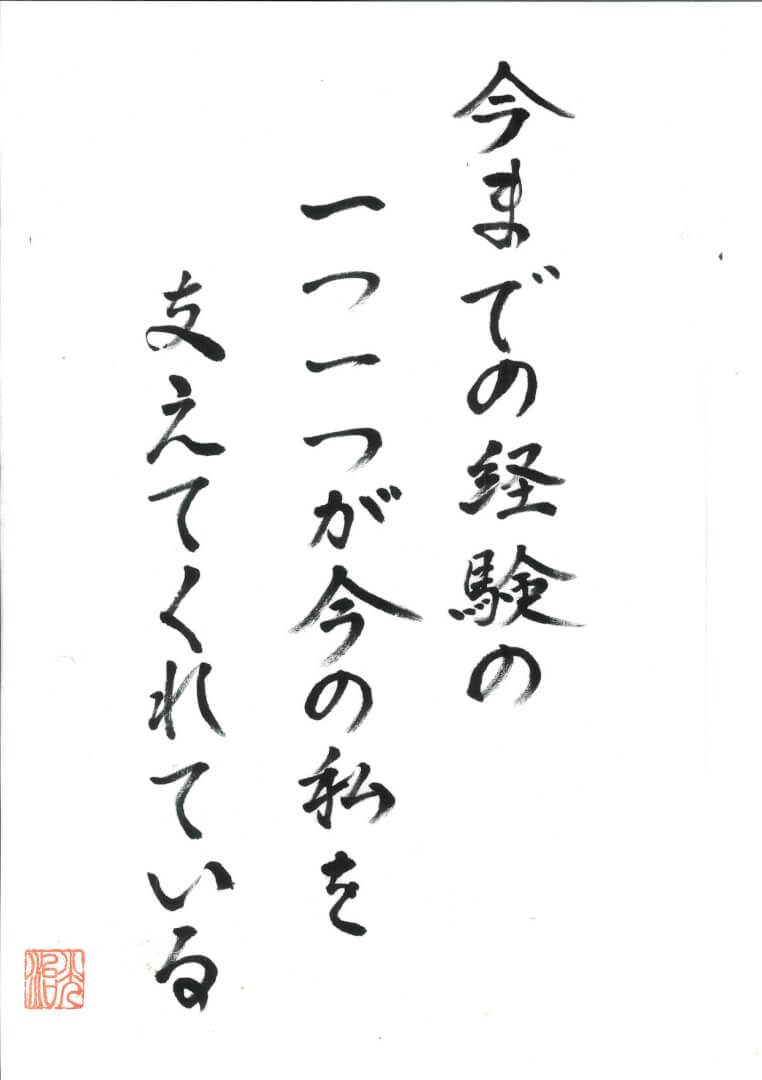 今までの経験の
一つ一つが今の私を
支えてくれている